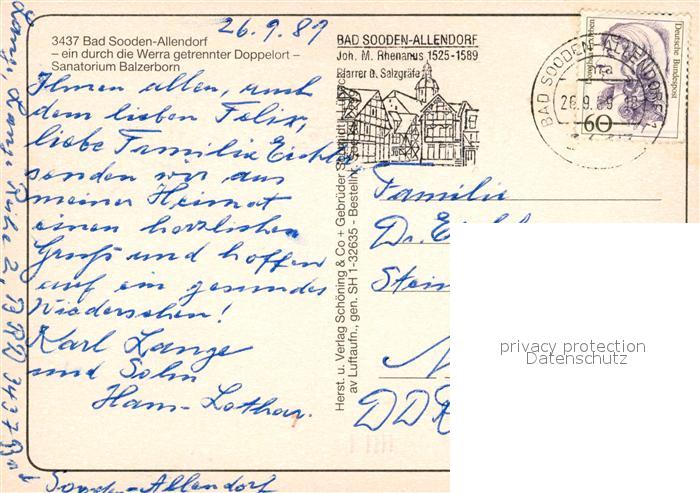 26.9.89
3437 Bad Sooden-Allendorf
– ein durch die Werra getrennter Doppelort –
Sanatorium Balzerborn
Ihnen allen, auch
dem lieben Felix,
liebe Familie
senden wir aus
meiner Heimat
einen herzlichen
Gruß und hoffen
auf ein gesundes
Wiedersehen!
Karl Lange
und Sohn
Hans-Lothar.
Lange, 2, BRD 3437 Bad
Sooden-Allendorf
Herst. u. Verlag Schöning & Co + Gebrüder Schmidt,
av Luftaufn., gen. SH 1-32635 - Bestellnr.
BAD SOODEN-ALLENDORF
Joh. M. Rhenanus 1525-1589
Pfarrer u. Salzgräfe
BAD SOODEN-ALLENDORF 1
26.9.89
3437
Deutsche Bundespost
60
Familie
Dr.
Stein
DDR
privacy protection
Datenschutz